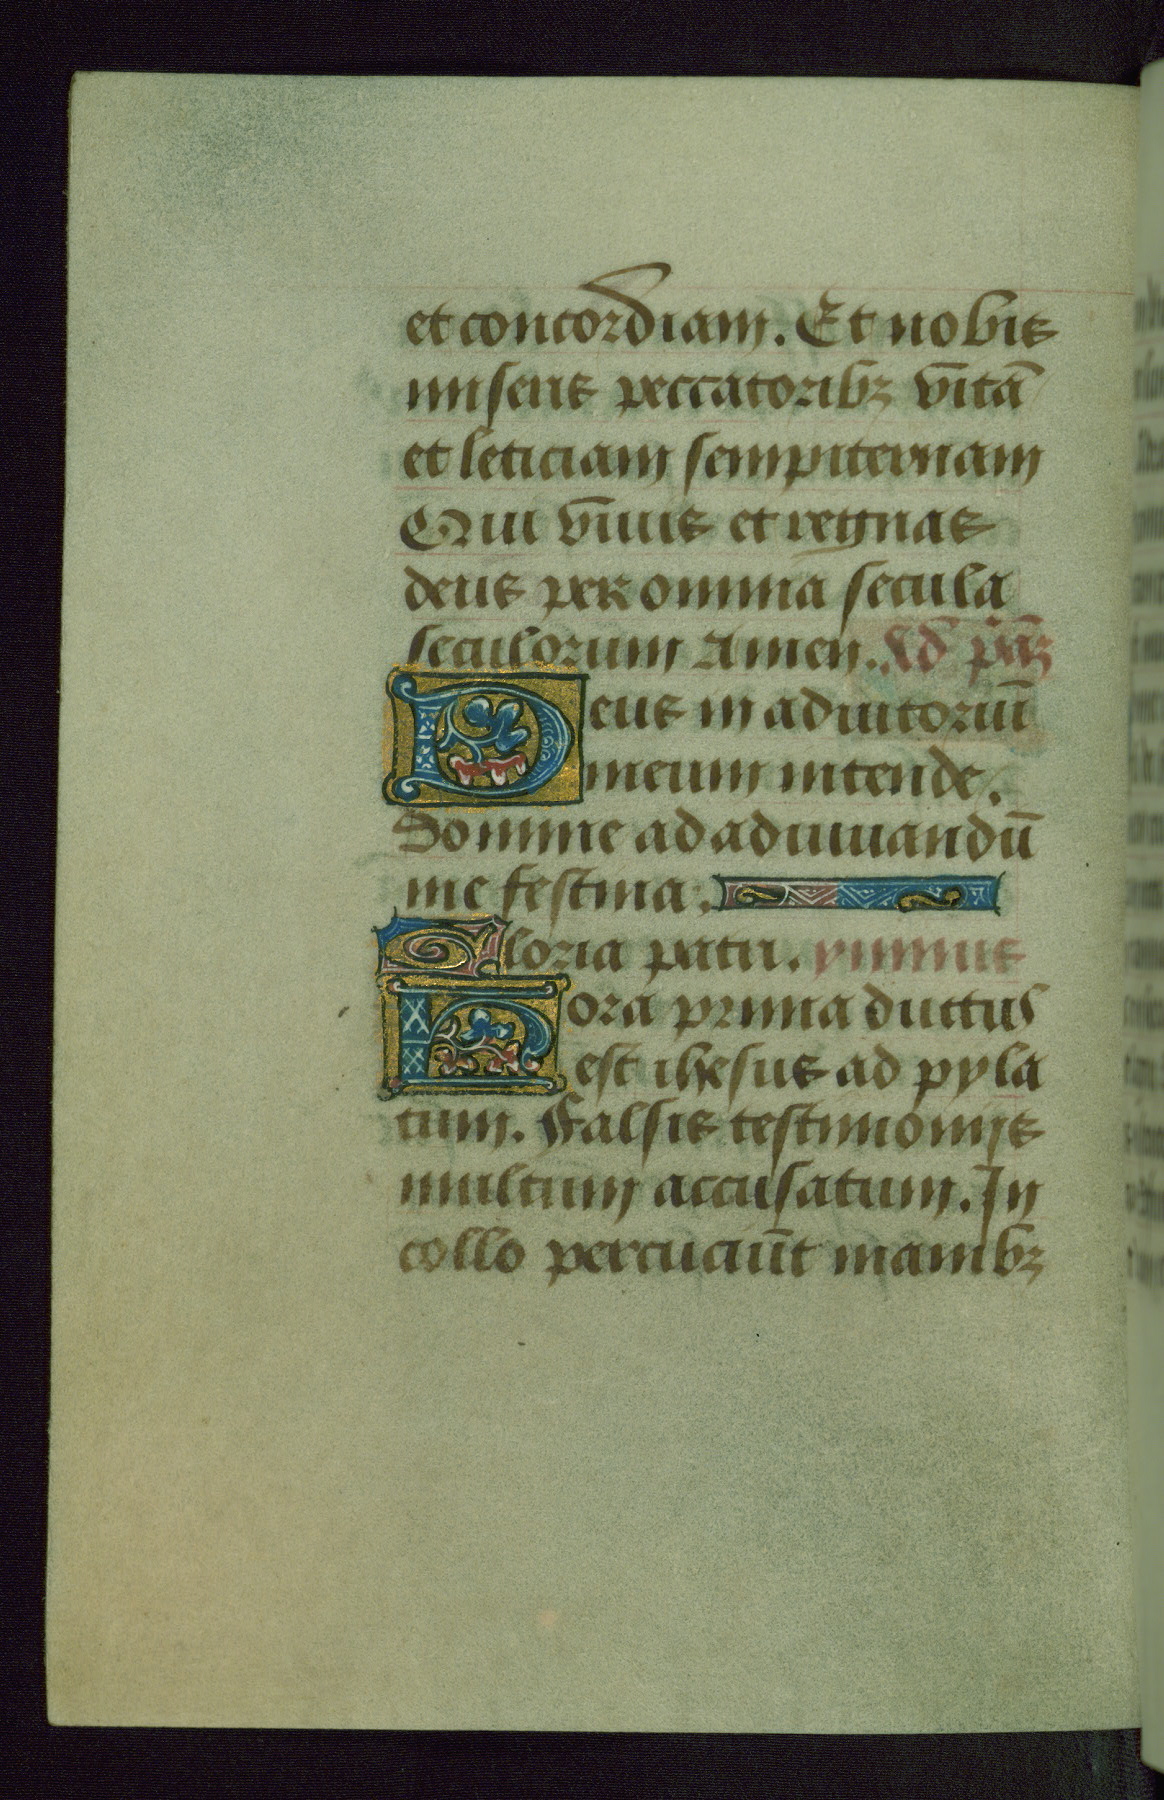 et concordiam. Et nobis
miseris peccatoribꝫ vitā
et leticiam sempiternam
Qui viuis et regnas
deus per omnia secula
seculorum Amen. Ad pͥmā
Deus in adiutoriū
meum intende.
Domine ad adiuuandū
me festina.
Gloria patri. ymnus
Hora prima ductus
est ihesus ad pyla
tum. Falsis testimonijs
multum accusatum. In
collo percuciūt manibꝫ